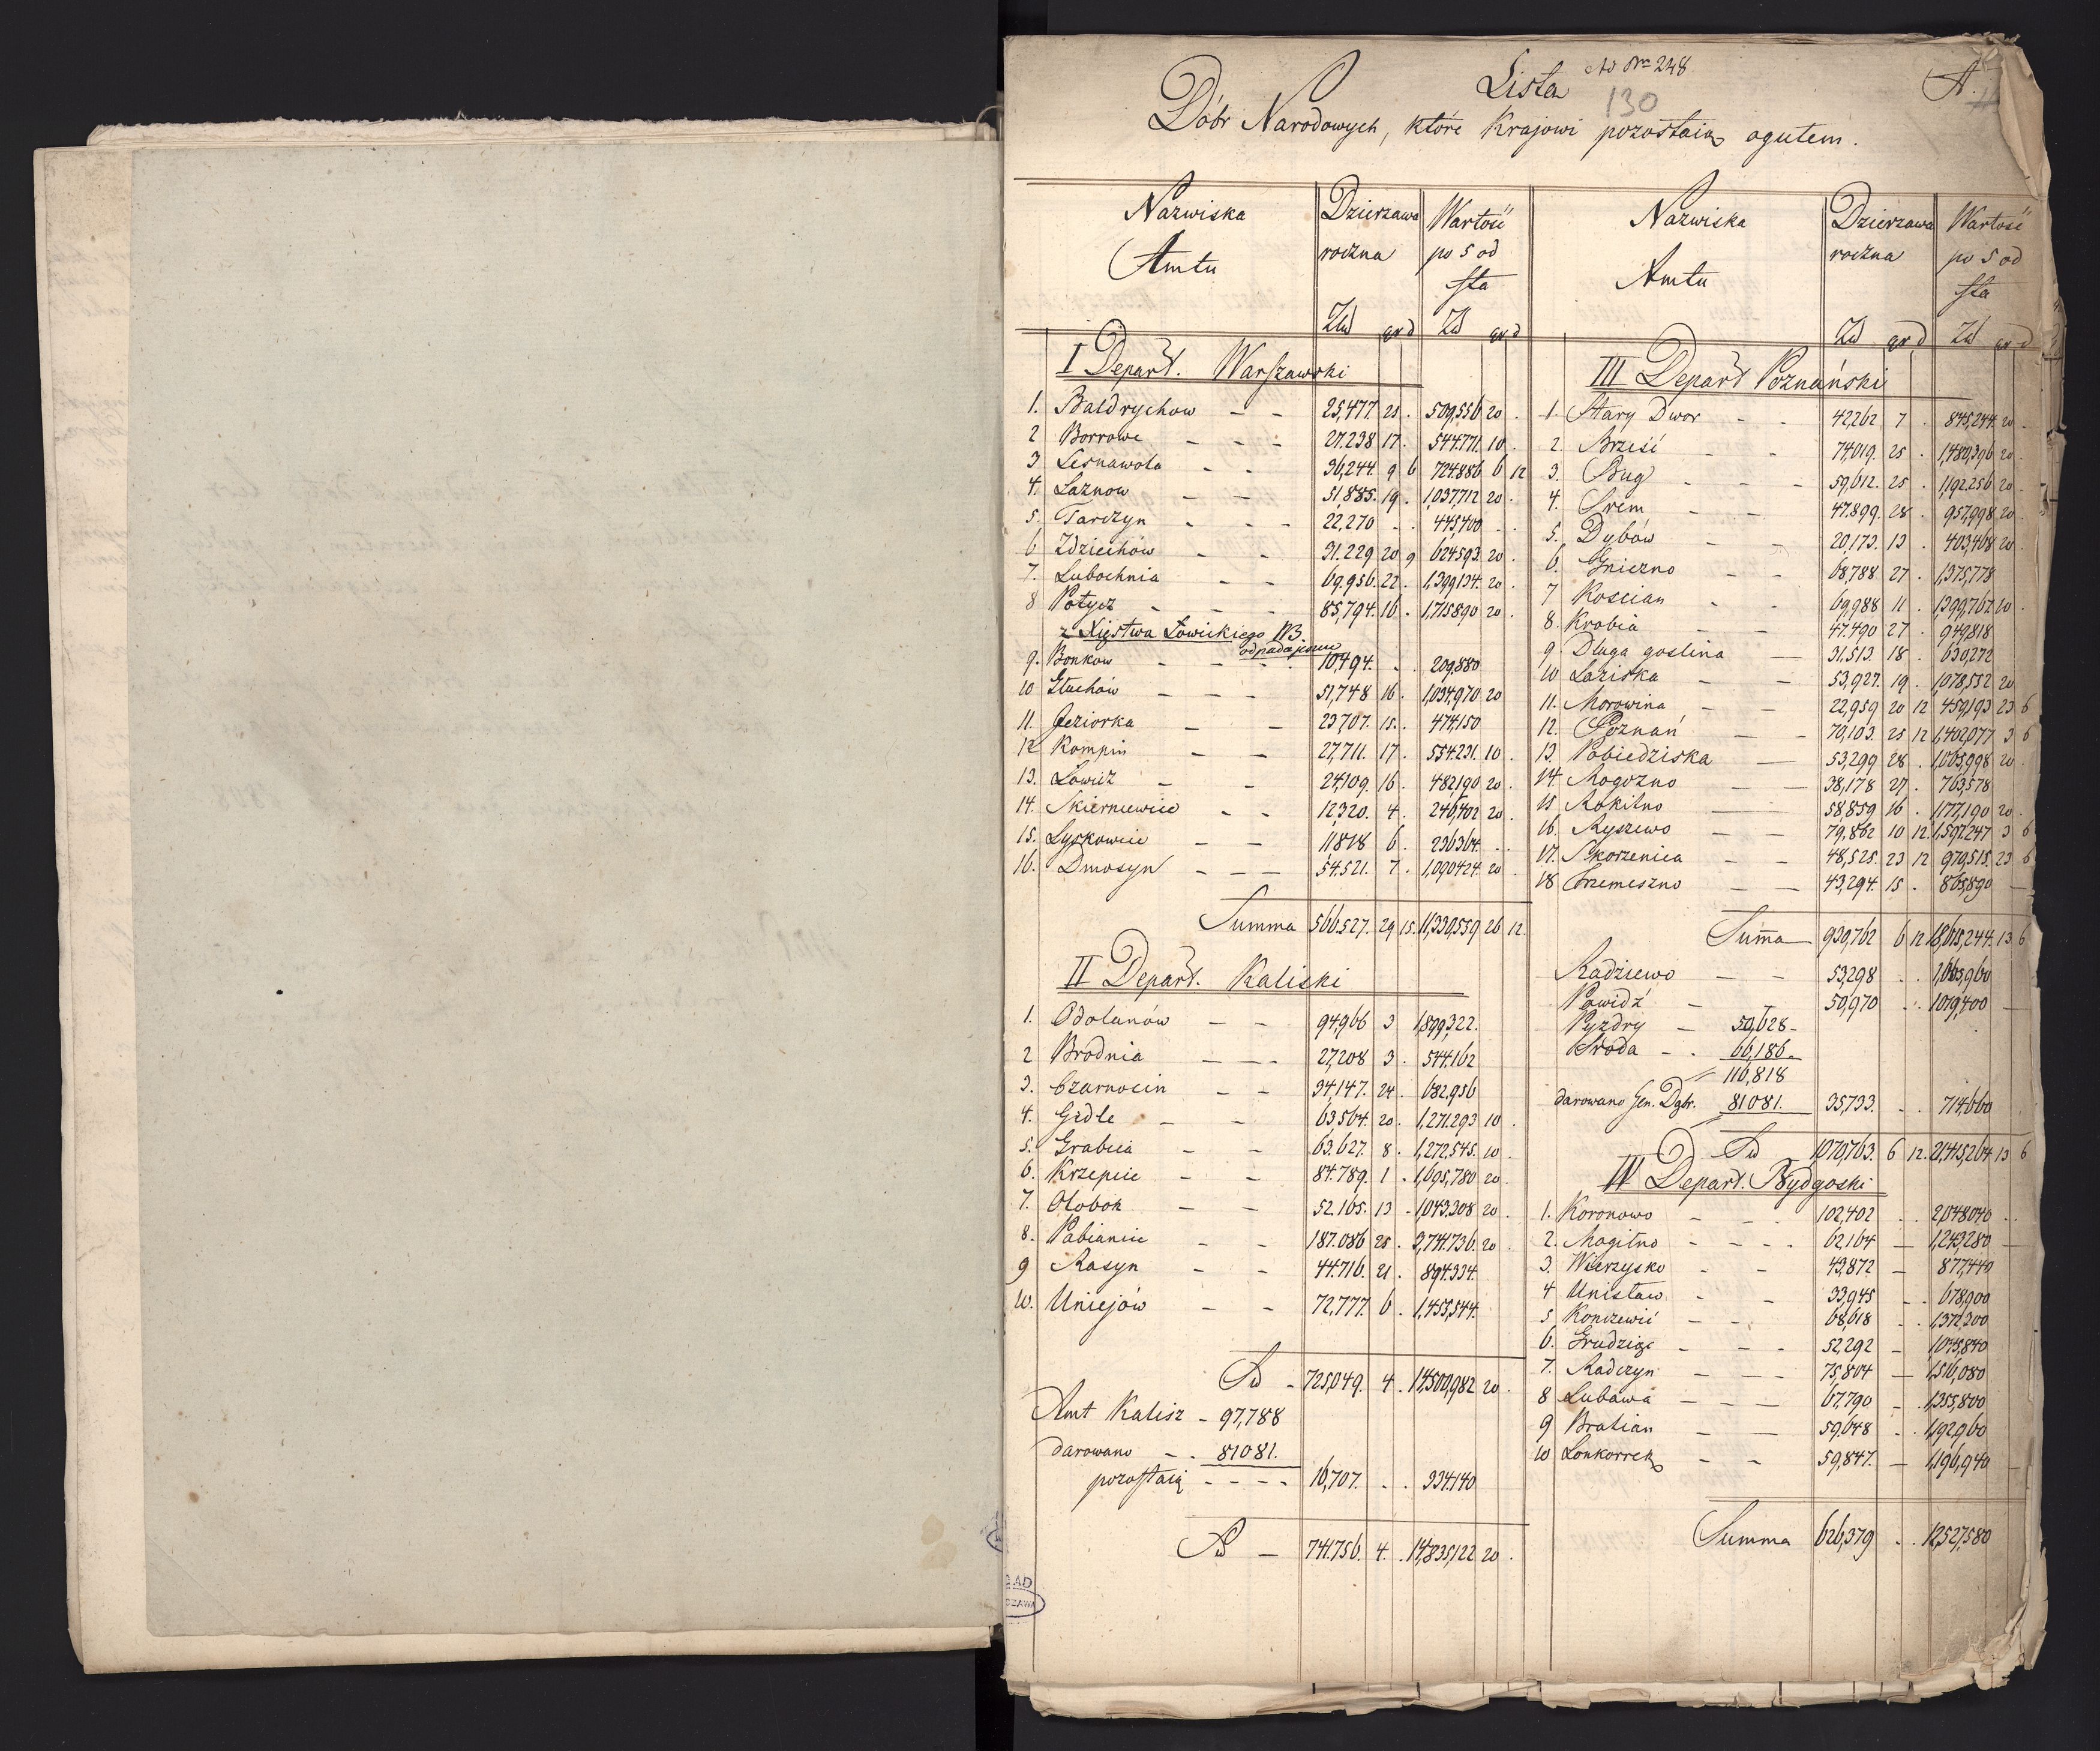 Ad Nrm 248
Lista
130
A.
Dóbr Narodowych, które Krajowi pozostaią ogułem.
Nazwiska Amtu | Dzierzawa roczna Zł gr d | Wartość po 5 od sta Zł gr d
I Depart. Warszawski
1. Baldrychow - - 25,477 25 . 509,556 20 .
2 Borrowe - - - 27.238 17 . 544.771. 10 .
3 Lesnawola - - 36,244 9 6 724886 6 12
4. Laznow - - 51,885. 19 . 1,037,712 20 .
5. Tarczyn - - - 22,270 . . 445,400 . .
6 Zdziechów - - 31.229 20 9 624593. 20 .
7. Lubochnia - - 69.956. 22 . 1,399,134. 20 .
8 Potycz - - - 85,794. 16 . 1,715890 20 .
z Xięstwa Łowickiego N3. odpadaiące
9. Bonkow - - - 10,494. . . 209,880
10 Głuchów - - - 51,748 16 . 1,034,970 20
11. Jeziorka - - 23,707. 15 . 474,150
12 Kompin - - 27,711. 17 . 554.231. 10 .
13. Lowicz - - 24,109. 16 . 482,190 20 .
14. Skierniewice - - 12,320. 4 . 246,402 20 .
15. Lyskowice - - 11818 6 . 236364. . .
16. Dmosyn - - - 54.521. 7 . 1,090424. 20 .
Summa 566.527. 29 15. 11,330,559 26 12.
II Depart. Kaliski
1. Odolanów - - 94,966 3 1,899,322.
2 Brodnia - - - 27,208 3 . 544.162
3. Czarnocin - - 34,147. 24 . 682.956
4. Gidle - - 63,564. 20 . 1,271.293 10 .
5. Grabica - - 63.627. 8 . 1,272,545. 10 .
6. Krzepice - - 84.789. 1 . 1,695,780 20 .
7. Olobok - - 52.165. 13 - 1,043.308 20 .
8. Pabianice - - 187.086 25 . 3,741.736. 20 .
9 Rasyn - - 44.716. 21 . 894.334.
10. Uniejów - - 72,777. 6 . 1,455,544.
Sa - 725,049. 4 . 14,500,982 20 .
Amt Kalisz - 97,788
darowano - . 81081.
pozostaią - - - - 16,707. . . 334.140
Sa - 741.756. 4. . 14,835,122 20 .
Nazwiska Amtu | Dzierzawa roczna Zł gr d | Wartość po 5 od sta Zł gr d
III Depart Poznański
1. Stary Dwor - - 42,262 7 . 845,244. 20 .
2. Brześć - - 74,019. 25 . 1,480,396 20 .
3. Bug - - - 59,612. 25 . 1,192.256 20 .
4. Srem - - 47.899. 28 . 957,998 20 .
5. Dybów - - 20,173. 13 . 403,468 20 .
6. Gniezno - - 68,788 27 . 1,375,778
7 Koscian - - 69,988 11 . 1,399,767 20 .
8. Krobia - - 47.490 27 . 949,818
9 Dluga goslina — 31.513. 18 . 630,272
10 Laziska - - 53,927. 19 . 1,078,552 20
11. Morowina - - 22,959 20 12 459,193 23 6
12. Poznań - - 70,103. 25 12 1,402,077 3 6
13. Pobiedziska — 53,299 28 . 1,065,998 20 .
14. Rogozno - - 38,178 27 . 763,578
15 Rokitno — 58,859 16 . 1,177,190 20 .
16. Ryszewo - - 79,862 10 12. 1,597.247 3 6
17. Skorzenica - - 48,525. 23 12 970,515. 23 6
18 Trzemeszno - - 43,294. 15 . 865,890 —
Suma 930,762 6 12 18,615,244. 13 6
Radziewo - - 53,298 . . 1,065,960
Powidź - 50,970 . . 1,019,400 —
Pyzdry - 50,628 -
Sroda - . 66,186 -
116,818
darowano Gen. Dąbr. 81081. 35,733. . . 714,660
Sa 1070,763. 6 12. 21,415,264 13 6
IV Depart. Bydgoski
1. Koronowo - - - 102,402 . . 2,048040 . .
2. Mogilno - - - - 62,164 — 1,243,280 —
3. Wierzysko - - 43,872 — 877,440
4 Unislaw - - 33,945 - . 678,900
5 Konczewić - - 68,618 . . 1,372,300
6. Grudziąz - - - 52,292 — 1,045,840
7. Radzyn - - - 75,804 — 1,516,080
8 Lubawa - - - 67,790 - . 1,355,800
9 Bratian - - 59,648 . . 1,192,960
10 Lonkorrek - - 59,847. — 1,196,940 —
Summa 626,379 . . 12,527,580